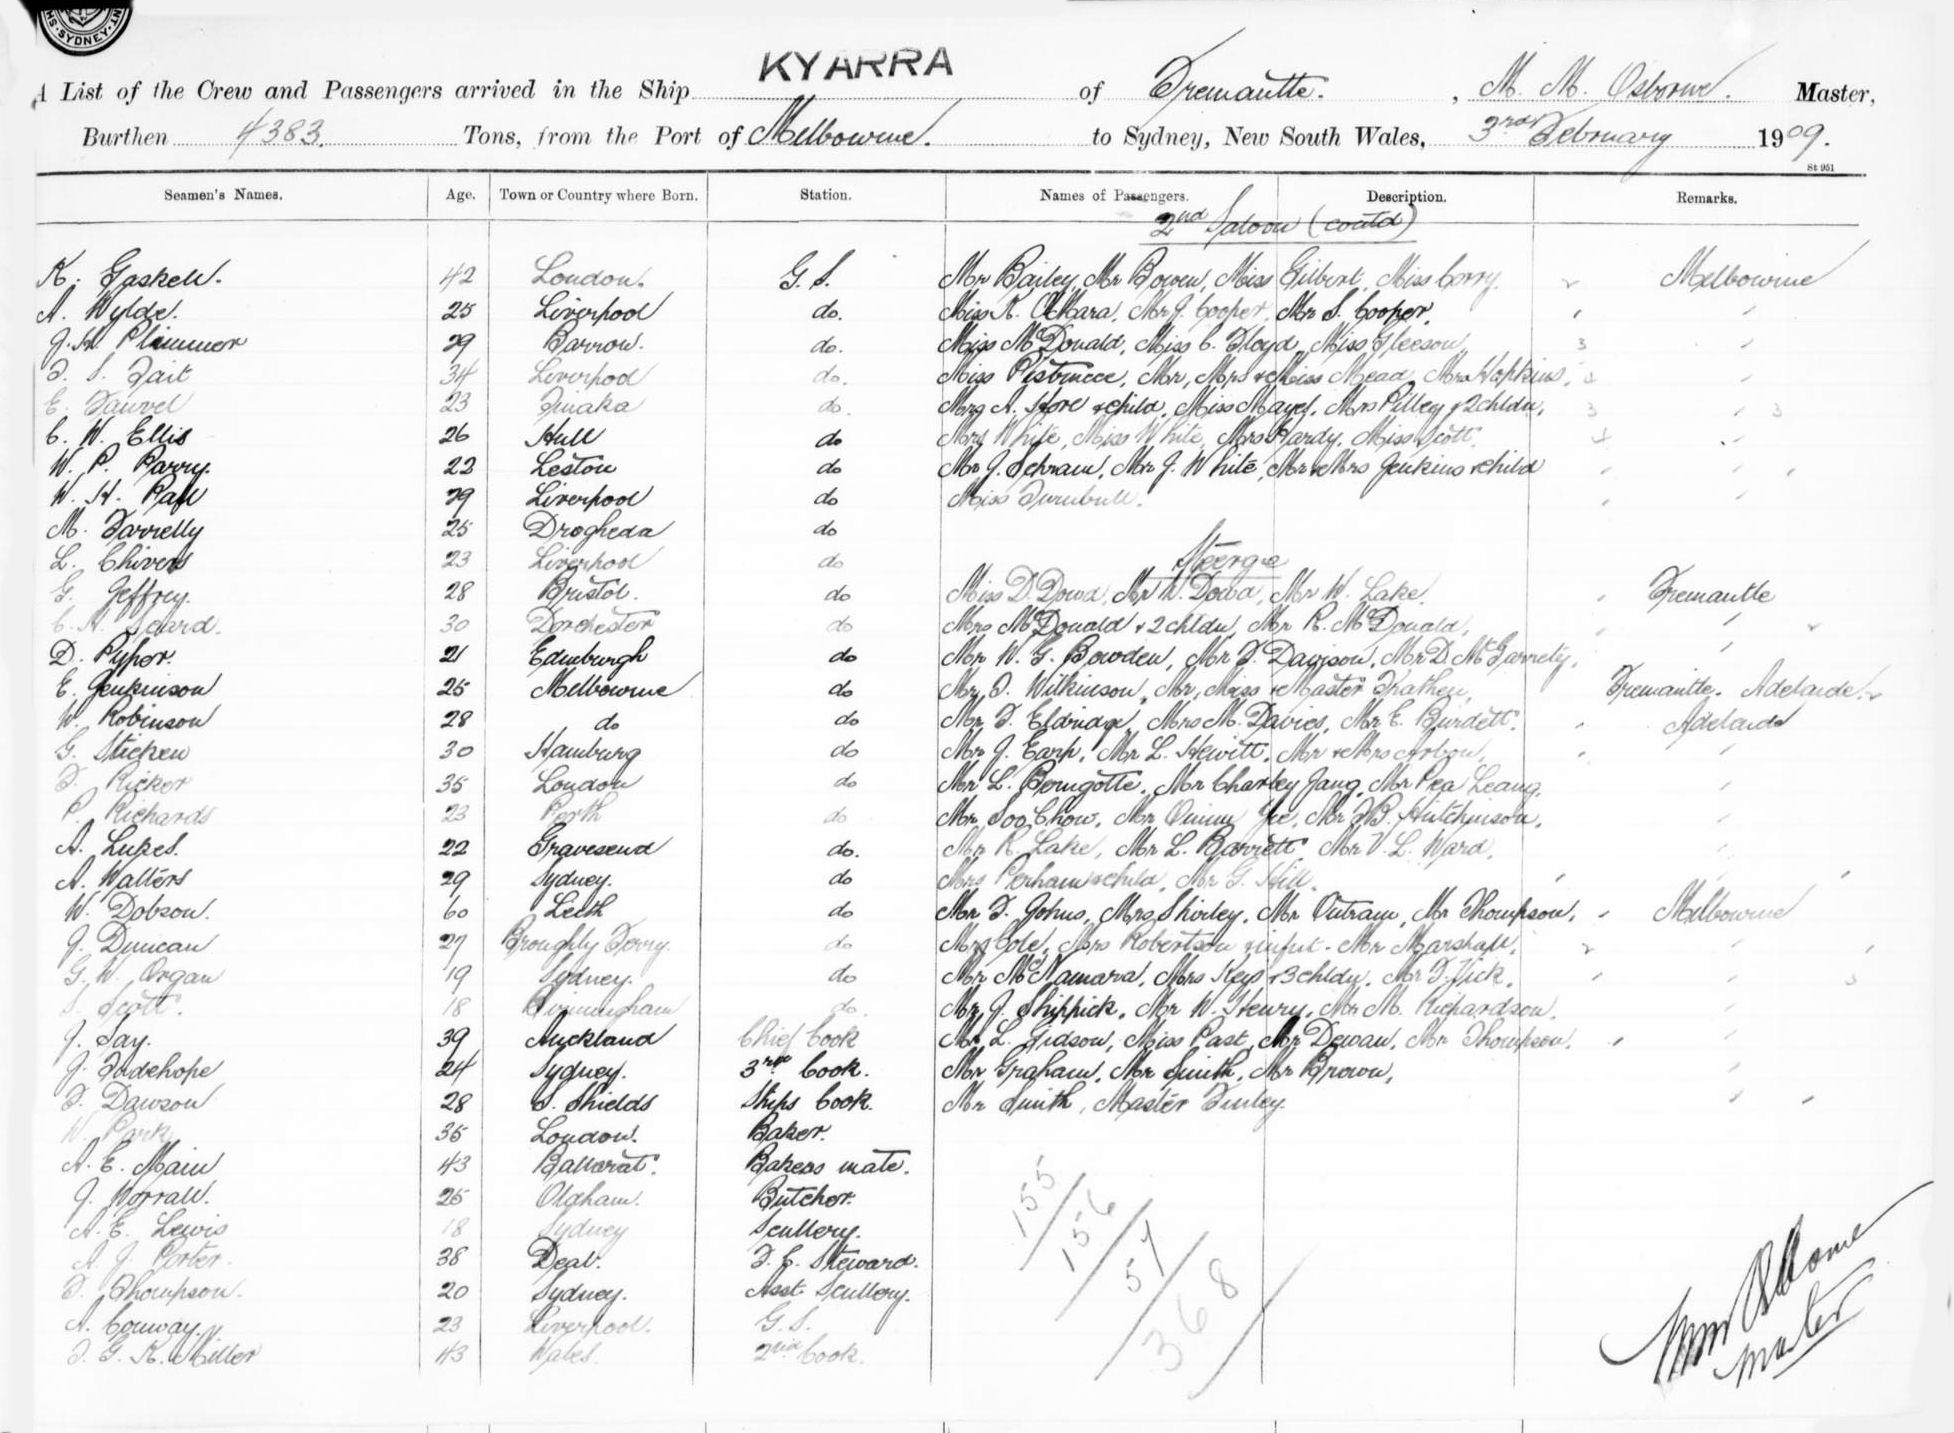 SYDNEY
KYARRA
A List of the Crew and Passengers arrived in the Ship of Fremantle. , M. M. Osborne. Master,
Burthen 4383. Tons, from the Port of Melbourne. to Sydney, New South Wales, 3rd February 1909.
St 951
Seamen's Names. Age. Town or Country where Born. Station. Names of Passengers. Description. Remarks.
2nd Saloon (contd)
K. Gaskell. 42 London. G. S. Mr Bailey, Mr Bowen, Miss Gilbert, Miss Corry. Melbourne
A. Wylde. 25 Liverpool do. Miss K. O'Mara, Mr J. Cooper, Mr S. Cooper, "
J. H. Plimmer 29 Barrow. do. Miss McDonald, Miss C. Floyd, Miss Gleeson, 3 "
F. S. Tait 34 Liverpool do. Miss , Mr, Mrs & Miss Mead, Mrs Hopkins, "
E. 23 do. Mrs A. Hore & child, Miss Mayes, Mrs Pilley & 2 chldn, 3 " 3
C. W. Ellis 26 Hull do Mrs White, Miss White, Mrs Hardy, Miss Scott 4 "
W. P. Parry. 22 Leston do Mr J. Schram, Mr J. White, Mr & Mrs Jenkins & child " "
W. H. 29 Liverpool do Miss Turnbull. "
M. Farrelly 25 Drogheda do
L. Chivers 23 Liverpool do
Steerge
G. Jeffrey. 28 Bristol. do Miss D. Dowd, Mr W. Dowd, Mr W. Lake. Fremantle
C. H. Seard. 30 Dorchester do Mrs McDonald & 2 chldn, Mr R. McDonald, "
D. Pyper. 21 Edinburgh do Mr W. G. Bowden, Mr F. Davison, Mr D. McGarrety, "
E. Jenkinson 25 Melbourne do Mr F. Wilkinson, Mr, Miss & Master Frathen, Fremantle. Adelaide.
W. Robinson 28 do do Mr F. Eldridge, Mrs M. Davies, Mr E. Burdett. Adelaide
G. Sticken 30 Hamburg do Mr J. Earp, Mr L. Hewitt, Mr & Mrs Arbon, "
F. Ricker 35 London do Mr L. , Mr Charley Jang, Mr Pea Leang, "
P. Richards 23 Perth do Mr Soo Chow, Mr Quinn Yee, Mr F. B. Hutchinson, "
A. Lupes. 22 Gravesend do. Mr R. Lake, Mr L. Barrett, Mr V. L. Ward, "
A. Walters 29 Sydney. do Mrs Perham & child, Mr G. Hill.
W. Dobson. 60 Leith do Mr F. Johns, Mrs Shirley, Mr Outram, Mr Thompson, Melbourne
J. Duncan 27 Broughty Ferry. do Mrs Cole, Mrs Robertson & infnt. Mr Marshall, 2 "
G. W. Organ 19 Sydney. do Mr McNamara, Mrs Keys & 3 chldn, Mr F. Vick, " 3
S. Scott. 18 Birmingham do. Mr J. Shippick, Mr W. Henry, Mr M. Richardson, "
J. Say. 39 Auckland Chief Cook Mr L. Gidson, Miss Past, Mr Dewan, Mr Thompson, "
J. Tudehope 24 Sydney. 3rd Cook. Mr Graham, Mr Smith, Mr Brown, "
F. Dawson 28 S. Shields Ships Cook. Mr Smith, Master Finley. "
W. Park 35 London. Baker.
A. E. Main 43 Ballarat. Bakers mate.
J. Worrall. 25 Oldham. Butcher.
A. E. Lewis 18 Sydney Scullery.
A. J. Porter. 38 Deal. F. C. Steward.
F. Thompson. 20 Sydney. Asst. Scullery.
A. Conway. 23 Liverpool. G. S.
F. G. K. Miller 43 Wales. 2nd Cook.
155
156
57
368
M M Osborne
Master